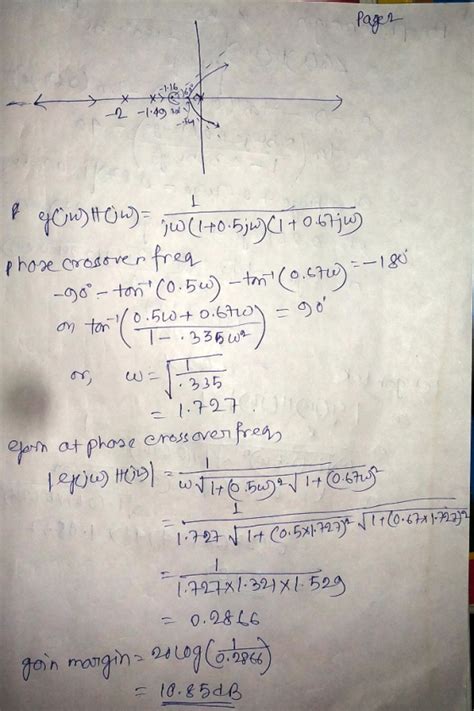 Page 2
-2 -1.49 -1.16
G(jω)H(jω) = 1 / jω(1+0.5jω)(1+0.67jω)
phase crossover freq
-90° - tan⁻¹(0.5ω) - tan⁻¹(0.67ω) = -180°
or tan⁻¹(0.5ω + 0.67ω / 1 - .335ω²) = 90°
or, ω = √(1/.335)
= 1.727.
gain at phase crossover freq,
|G(jω) H(jω)| = 1 / ω√1+(0.5ω)² √1+(0.67ω)²
= 1 / 1.727 √1+(0.5×1.727)² √1+(0.67×1.727)²
= 1 / 1.727×1.321×1.529
= 0.2866
gain margin = 20log(1/0.2866)
= 10.85dB